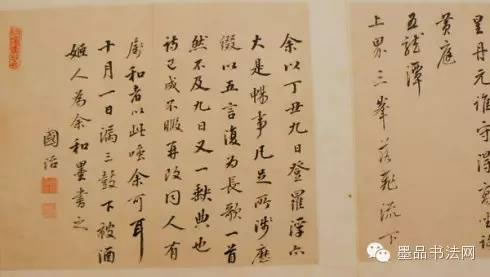 星丹元誰守得
黄庭
五龍潭
上界三峯落飛流下
余以丁丑九日登羅浮亦
大是暢事凡足所涉歴
儗以五言復為長歌一首
然不及九日又一欠典也
詩已成不暇再改同人有
屬和者以此唾余可耳
十月一日漏三鼓下被酒
姬人為余和墨書之
國治
墨品书法网